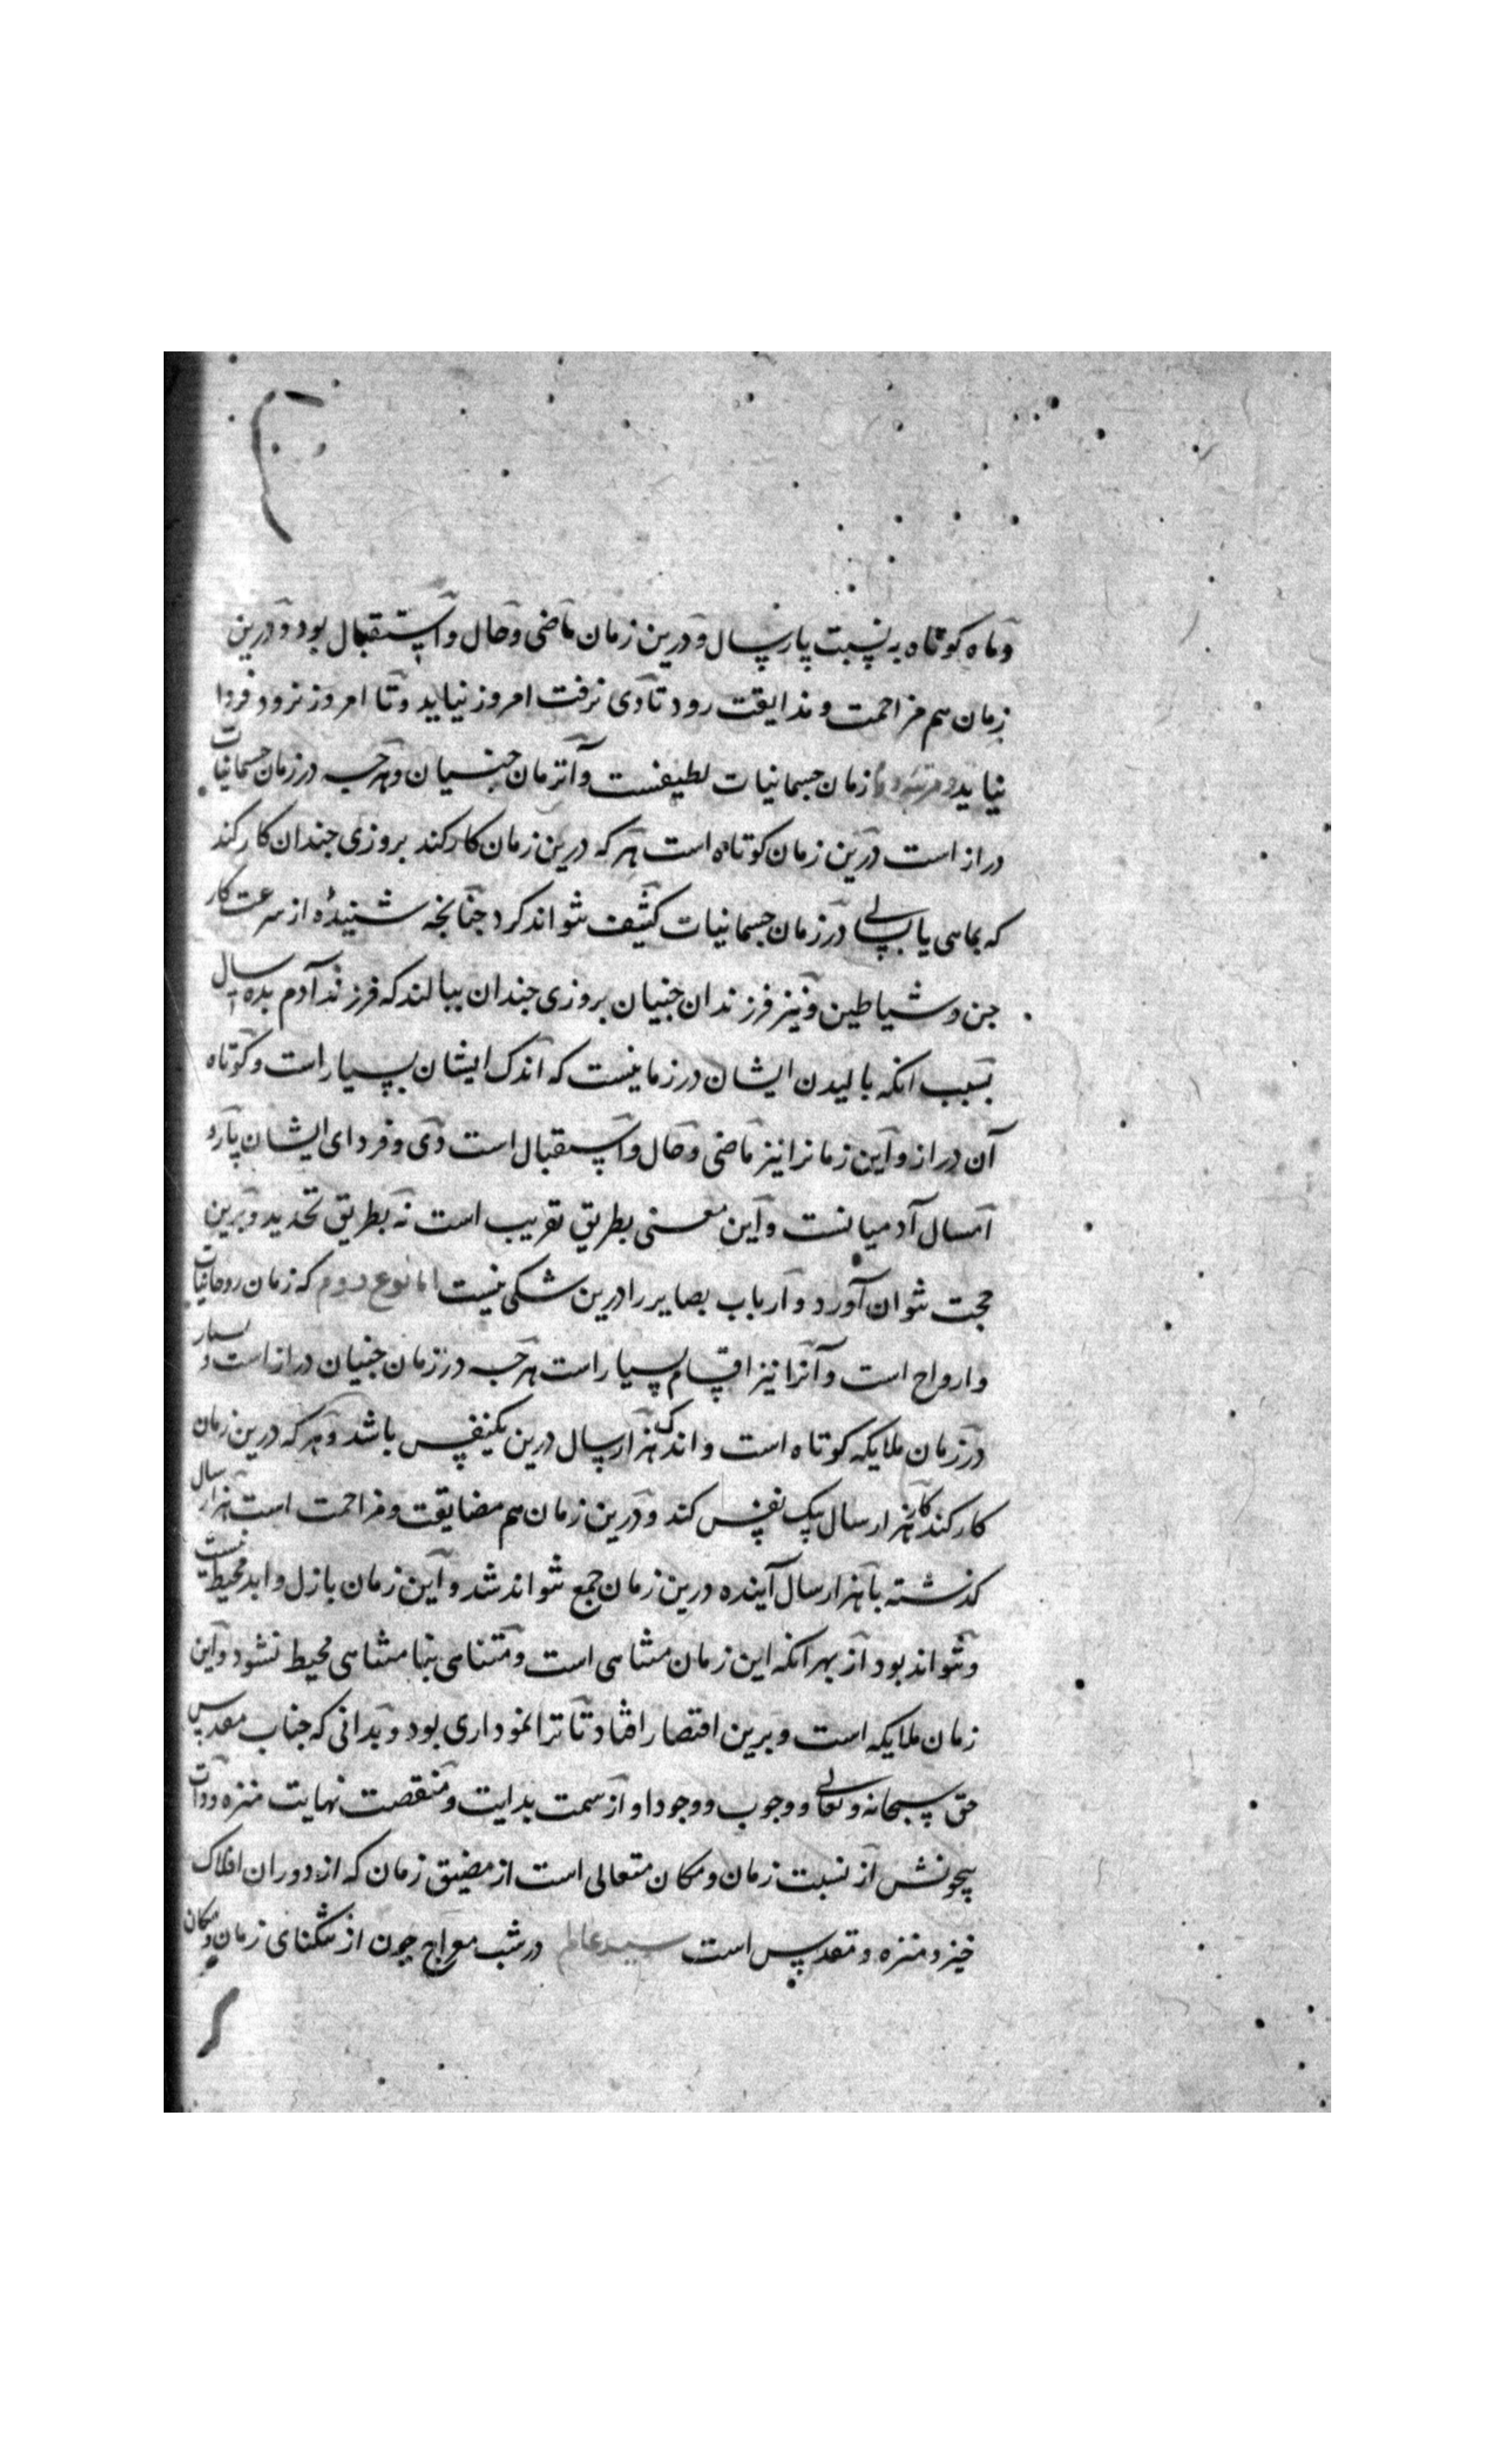 و ماه کوتاه به نسبت پار سال و درین زمان ماضی و حال و استقبال بود و درین
زمان هم مزاحمت و مذایقت رود تا دی نرفت امروز نیاید و تا امروز نرود فردا
نیاید و مرتبه دوم زمان جسمانیات لطیفست و آنزمان جنیان و هرچه در زمان جسمانیات
دراز است درین زمان کوتاه است هر که درین زمان کار کند بروزی چندان کار کند
که بماهی یا بسالی در زمان جسمانیات کثیف نتواند کرد چنانچه شنیدهٔ از سرعت کار
جن و شیاطین و نیز فرزندان جنیان بروزی چندان ببالند که فرزند آدم بده سال
بسبب انکه بالیدن ایشان در زمانیست که اندک ایشان بسیار است و کوتاه
آن دراز و این زمانرا نیز ماضی و حال و استقبال است دی و فردای ایشان پار و
امسال آدمیانست و این معنی بطریق تقریب است نه بطریق تحدید و برین
حجت نتوان آورد و ارباب بصایر را درین شکی نیست اما نوع دوم که زمان روحانیات
و ارواح است و آنرا نیز اقسام بسیار است هرچه در زمان جنیان دراز است و بسیار
در زمان ملایکه کوتاه است و اندک هزار سال درین یکنفس باشد و هر که درین زمان
کار کند کار هزار سال بیک نفس کند و درین زمان هم مضایقت و مزاحمت است هزار سال
کذشته با هزار سال آینده درین زمان جمع نتواند شد و این زمان بازل و ابد محیط نیست
و نتواند بود از بهر انکه این زمان متناهی است و متناهی بنامتناهی محیط نشود و این
زمان ملایکه است و برین اقتصار افتاد تا ترا نموداری بود و بدانی که جناب مقدس
حق سبحانه و تعالی و وجوب و وجود او از سمت بدایت و منقصت نهایت منزه و ذات
بیچونش از نسبت زمان و مکان متعالی است از مضیق زمان که از دوران افلاک
خیزد منزه و مقدس است سید عالم در شب معراج چون از تنکنای زمان و مکان